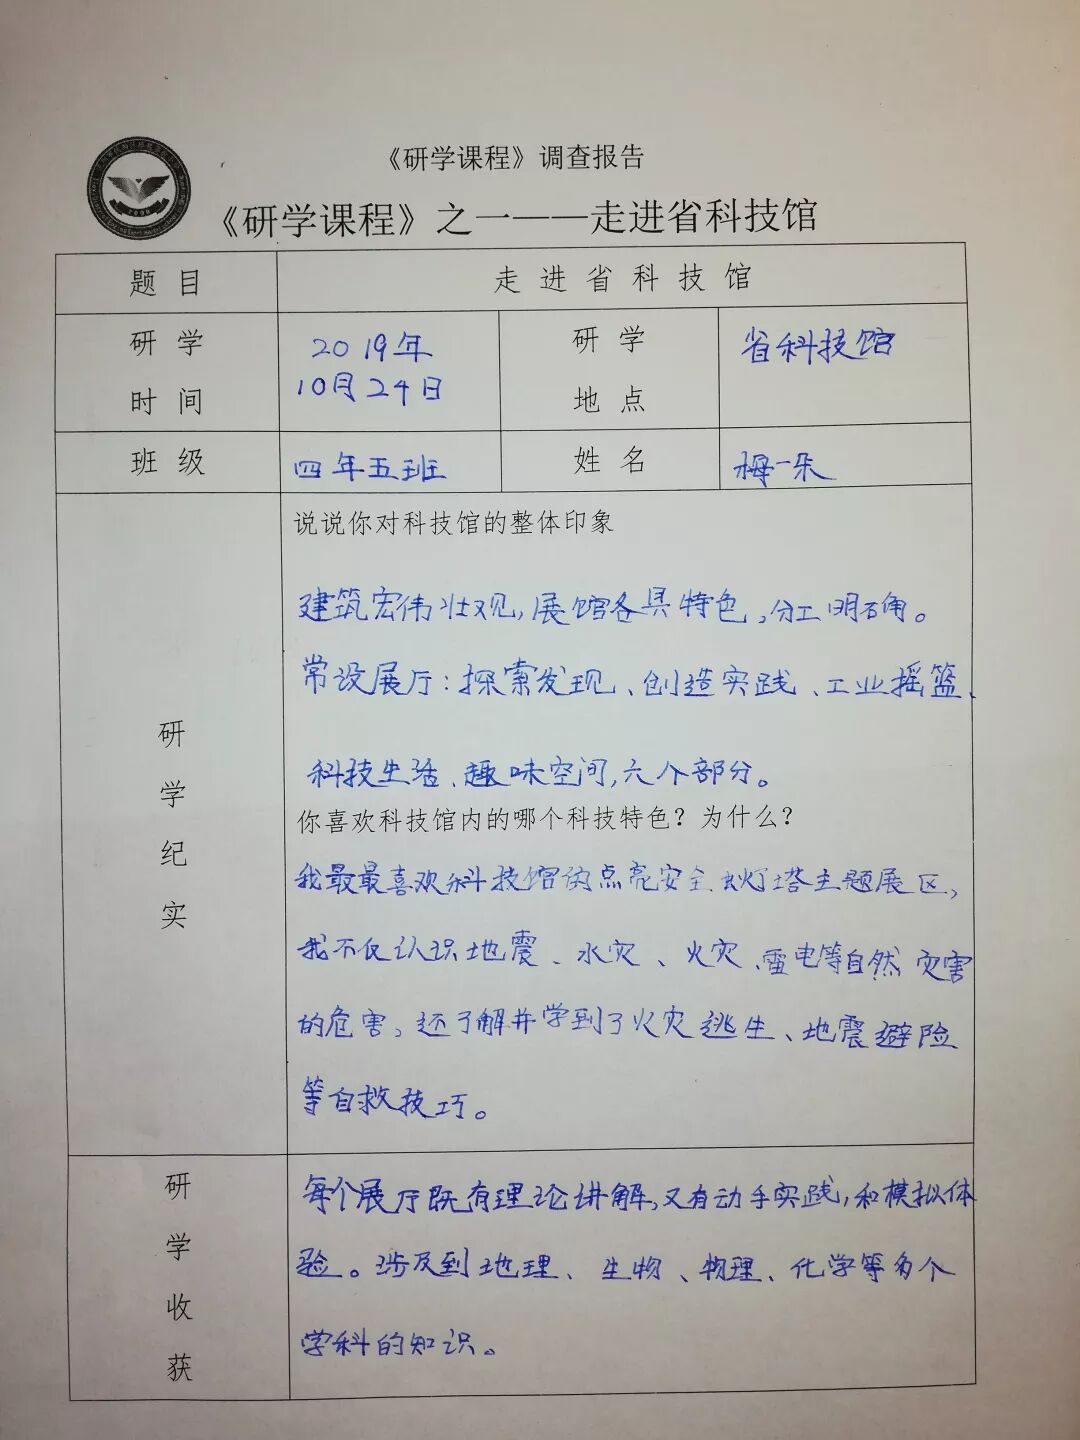 《研学课程》调查报告
《研学课程》之一——走进省科技馆
题 目
走 进 省 科 技 馆
研 学
时 间
2019年
10月24日
研 学
地 点
省科技馆
班 级
四年五班
姓 名
栂一朵
研
学
纪
实
说说你对科技馆的整体印象
建筑宏伟壮观,展馆各具特色,分工明确。
常设展厅:探索发现、创造实践、工业摇篮、
科技生活、趣味空间,六个部分。
你喜欢科技馆内的哪个科技特色?为什么?
我最最喜欢科技馆的点亮安全 灯塔主题展区,
我不仅认识地震、水灾、火灾、雷电等自然灾害
的危害,还了解并学到了火灾逃生、地震避险
等自救技巧。
研
学
收
获
每个展厅既有理论讲解,又有动手实践,和模拟体
验。涉及到地理、生物、物理、化学等多个
学科的知识。